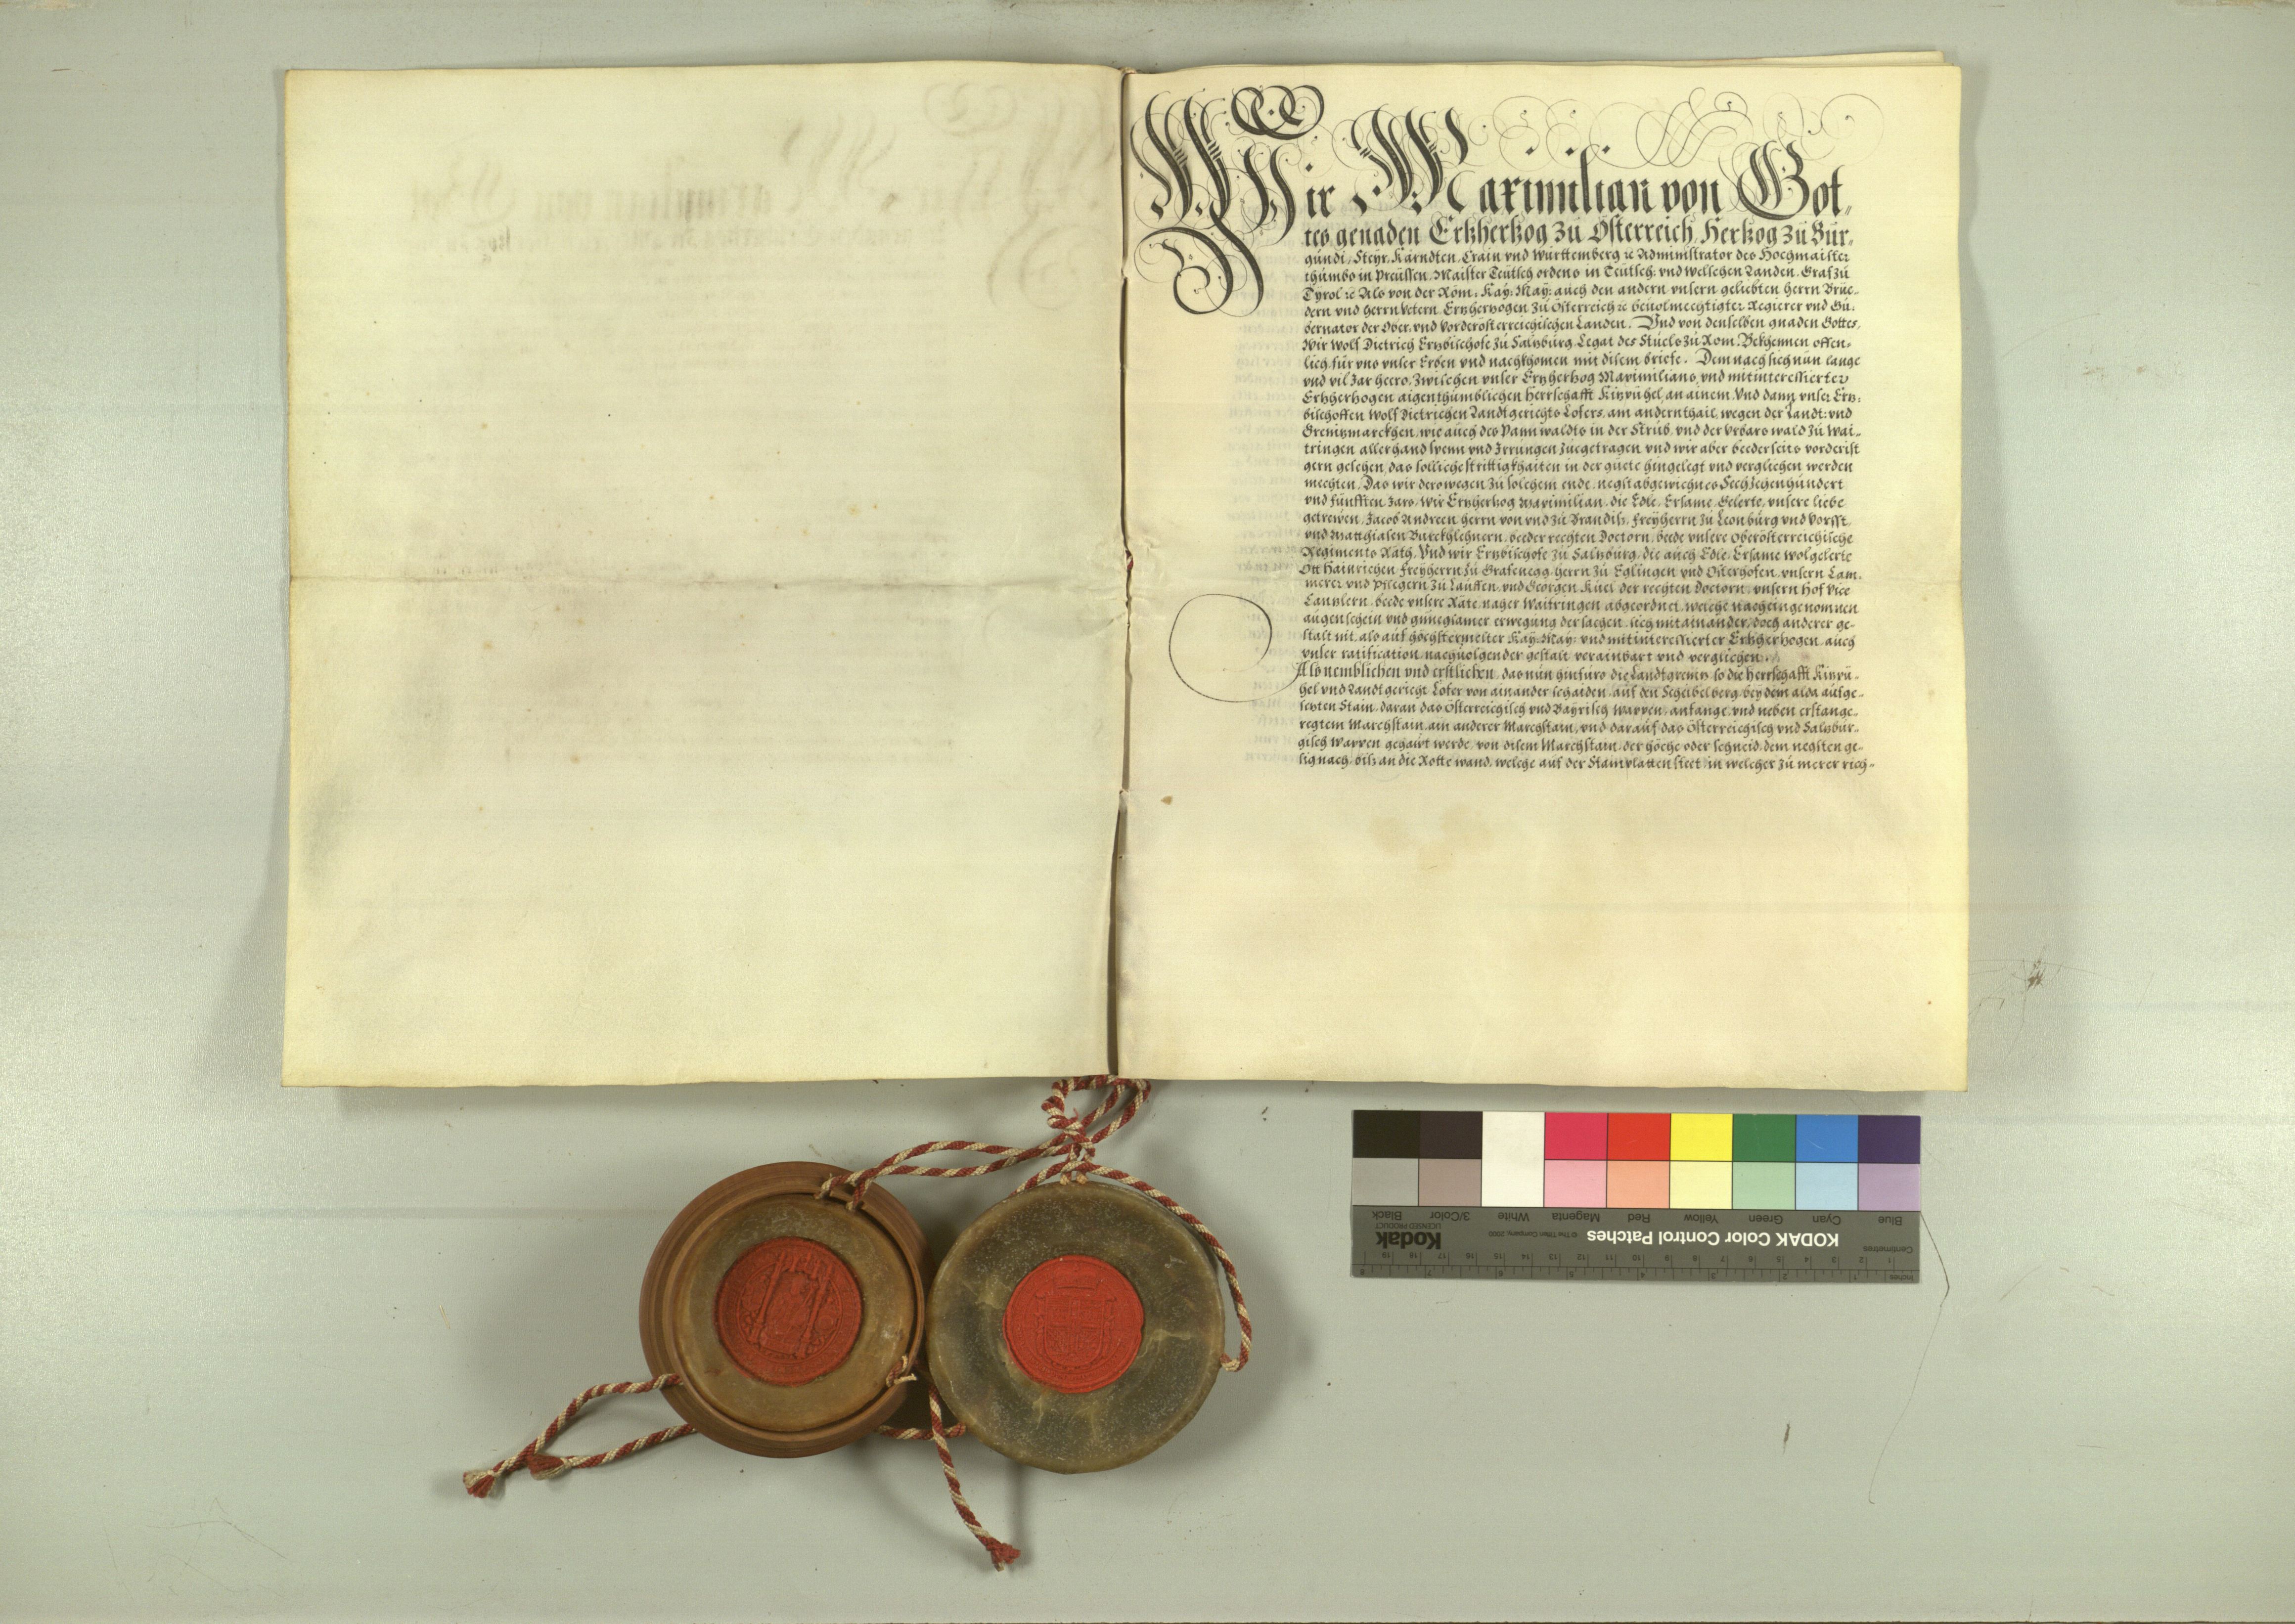 Wir Maximilian von Got„
tes genaden Ertzhertzog zu Österreich, Hertzog zu Bur„
gundi, Steyr, Kärndten, Crain vnd Württemberg ꝛc Administrator des Hochmaister
thumbs in Preüssen, Maister Teütsch ordens in Teütsch: vnd Welschen Landen, Graf zu
Tyrol ꝛc Als von der Röm: Kay: May: auch den andern vnsern geliebten herrn Brüe„
dern vnd herrn Vetern, Ertzhertzogen zu Österreich ꝛc beuolmechtigter Regierer vnd Gu„
bernator der Ober: vnd Vorderösterreichischen Landen. Vnd von denselben gnaden Gottes,
Wir Wolf Dietrich Ertzbischofe zu Saltzburg, Legat des Stuels zu Rom. Bekhennen offen„
lich für vns vnser Erben vnd nachkhomen mit disem briefe. Demnach sich nun lange
vnd vil Jar heero, zwischen vnser Ertzhertzog Maximilians, vnd mitinteressierter
Ertzhertzogen aigenthümblichen herrschafft Kitzbühel, an ainem, Vnd dann vnser Ertz„
bischoffen Wolf Dietrichen Landtgerichts Lofers, am andern thail, wegen der Landt: vnd
Grenitzmarckhen, wie auch des Pannwaldts in der Strub, vnd der Vrbars wald zu Wai„
tringen allerhand spenn vnd Irrungen zuegetragen, vnd wir aber beederseits vorderist
gern gesehen, das solliche strittigkhaiten in der guete hingelegt vnd verglichen werden
mechten, Das wir derowegen zu solchem ende, negst abgewichnes Sechzehenhundert
vnd fünfften Jars, Wir Ertzhertzog Maximilian, die Edle, Ersame, Gelerte, vnsere liebe
getrewen, Jacob Andreen herrn von vnd zu Brandiß, Freyherrn zu Leonburg vnd Vorsst,
vnd Matthiasen Burckhlehnern, beeder rechten Doctorn, beede vnsere Oberösterreichische
Regiments Räth, Vnd wir Ertzbischofe zu Saltzburg, die auch Edle, Ersame wolgelerte
Ott Hainrichen Freyherrn zu Grafenegg, herrn zu Eglingen vnd Osterhofen, vnsern Cam„
merer vnd Pflegern zu Lauffen, vnd Georgen Küel der rechten Doctorn, vnsern Hof Vice
Cantzlern, beede vnsere Räte, naher Waitringen abgeordnet, welche nach eingenomnen
augenschein vnd gnuegsamer erwegung der sachen, sich mitainander, doch anderer ge„
stalt nit, als auf höchstermelter Kay: May: vnd mitinteressierter Ertzhertzogen, auch
vnser ratification, nachuolgender gestalt verainbart vnd verglichen.
Als nemblichen vnd erstlichen, das nun hinfüro die Landtgrenitz, so die herrschafft Kitzbü„
hel vnd Landtgericht Lofer von ainander schaiden, auf den Scheibelberg, bey dem alda aufge„
setzten Stain, daran das Österreichisch vnd Bayrisch Wappen, anfange, vnd neben erstange„
regtem Marchstain, ain anderer Marchstain, vnd darauf das Österreichisch vnd Saltzbur„
gisch Wappen gehawt werde, von disem Marchstain, der höche oder schneid, dem negsten ge„
sig nach, biß an die Rotte wand, welche auf der Stainplatten steet, in welcher zu merer rich„
KODAK Color Control Patches
Kodak
LICENSED PRODUCT
© The Tiffen Company, 2000
Blue Cyan Green Yellow Red Magenta White 3/Color Black
Centimetres
Inches